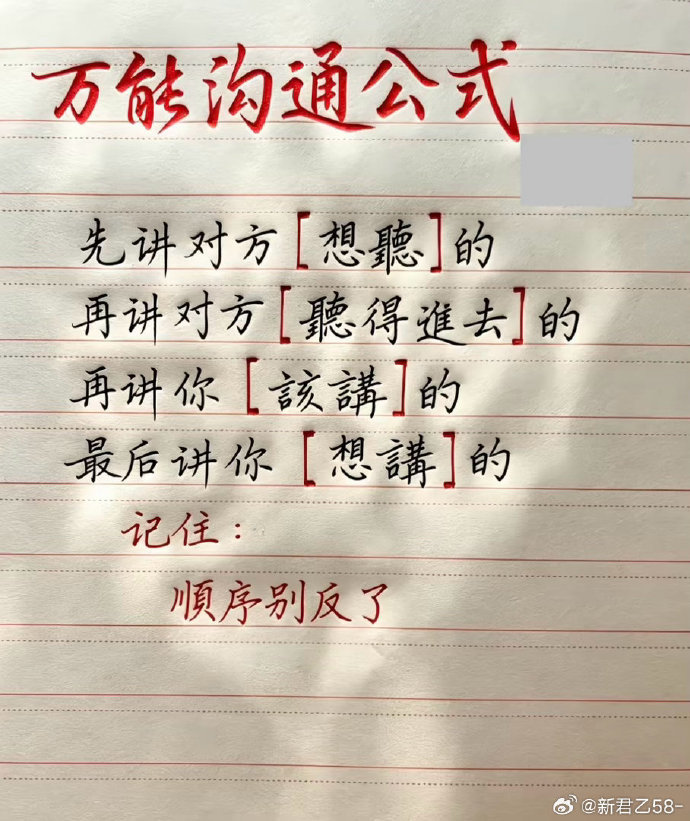 万能沟通公式
先讲对方[想聽]的
再讲对方[聽得進去]的
再讲你[該講]的
最后讲你[想講]的
记住:
順序别反了
@新君乙58-